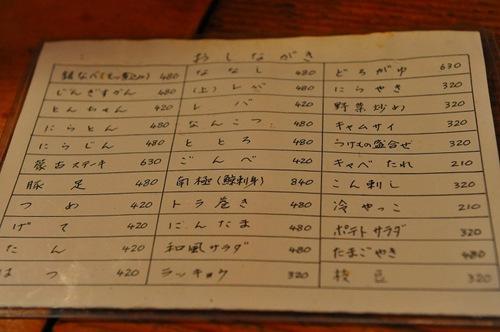 おしながき
鍋なべ(もつ煮込み) 480 ななし 480 どろがゆ 630
じんぎすかん 480 (上)レバ 480 にらやき 320
とんちゃん 420 レバ 420 野菜炒め 320
にらとん 480 なんこつ 480 キャムサイ 320
にらじん 480 ととろ 480 つけもの盛合せ 320
蒙古ステーキ 630 ごんべ 420 キャベたれ 210
豚足 480 南極(鯨刺身) 840 こん刺し 320
つめ 420 トラ巻き 480 冷やっこ 210
げて 420 にんたま 480 ポテトサラダ 320
たん 420 和風サラダ 480 たまごやき 480
はつ 420 ラッキョウ 320 枝豆 320